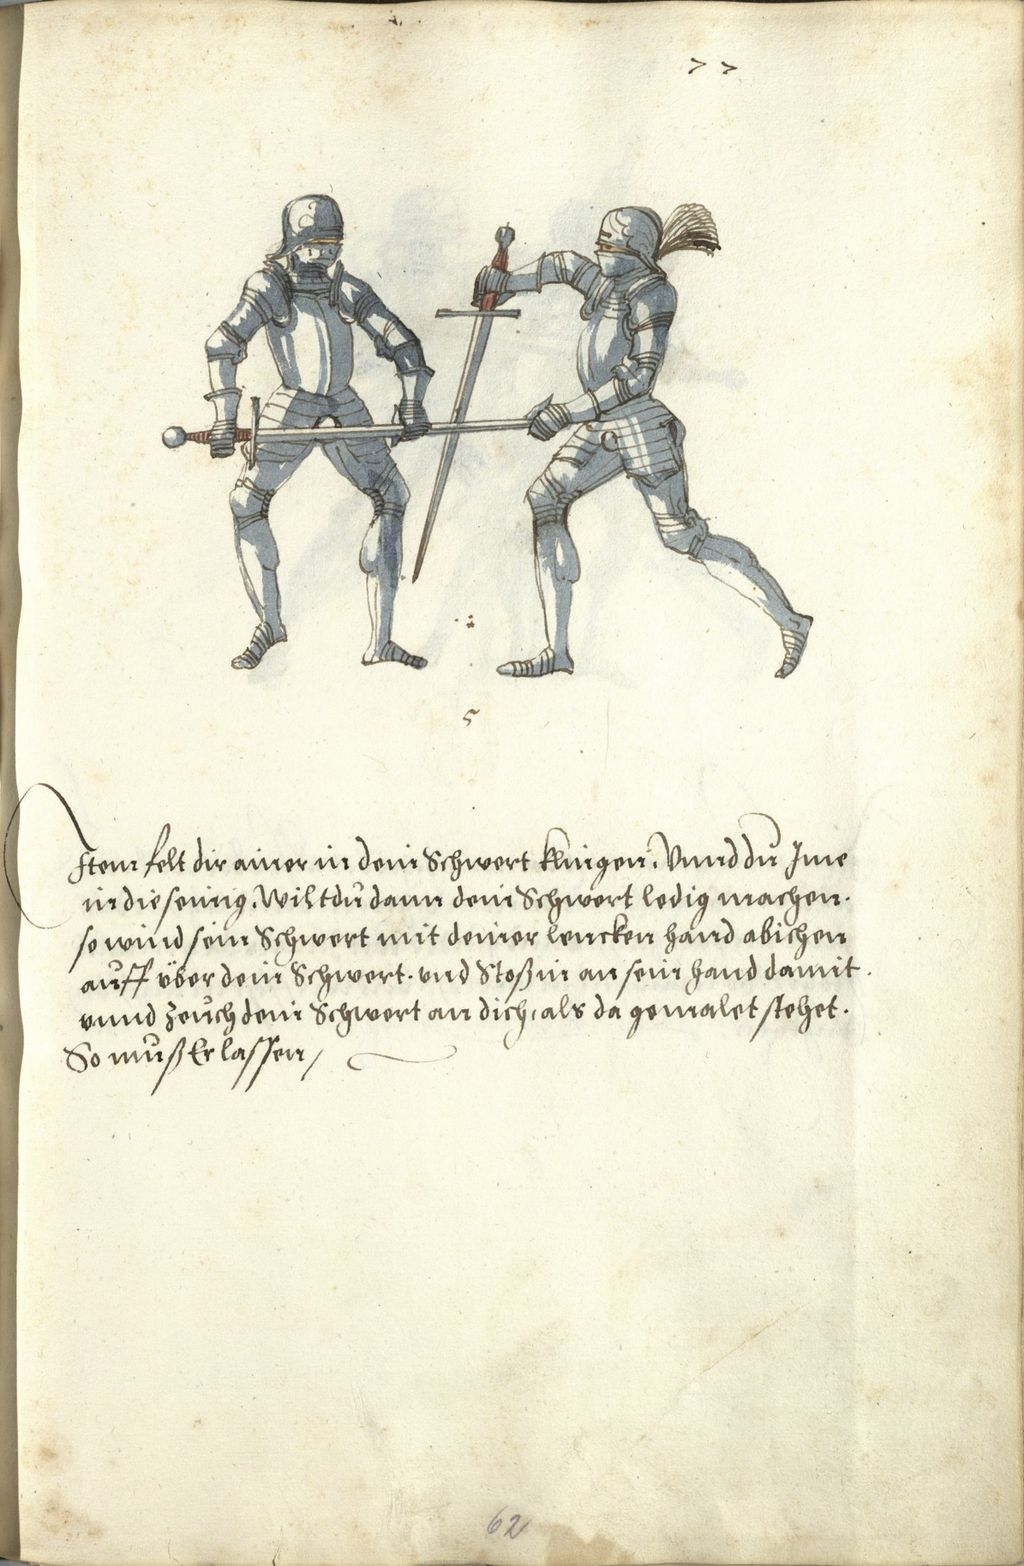 77
5
Item felt dir ainer in dein Schwert klingen. Vnnd dü Ime
in die seinig. Wilt dü dann dein Schwert ledig machen.
so wind sein Schwert mit deiner lencken hand abichen
aüff über dein Schwert. vnd Stoß in an sein hand damit.
vnnd zeüch dein Schwert an dich, als da gemalet stehet.
So müß Er lassen /
62